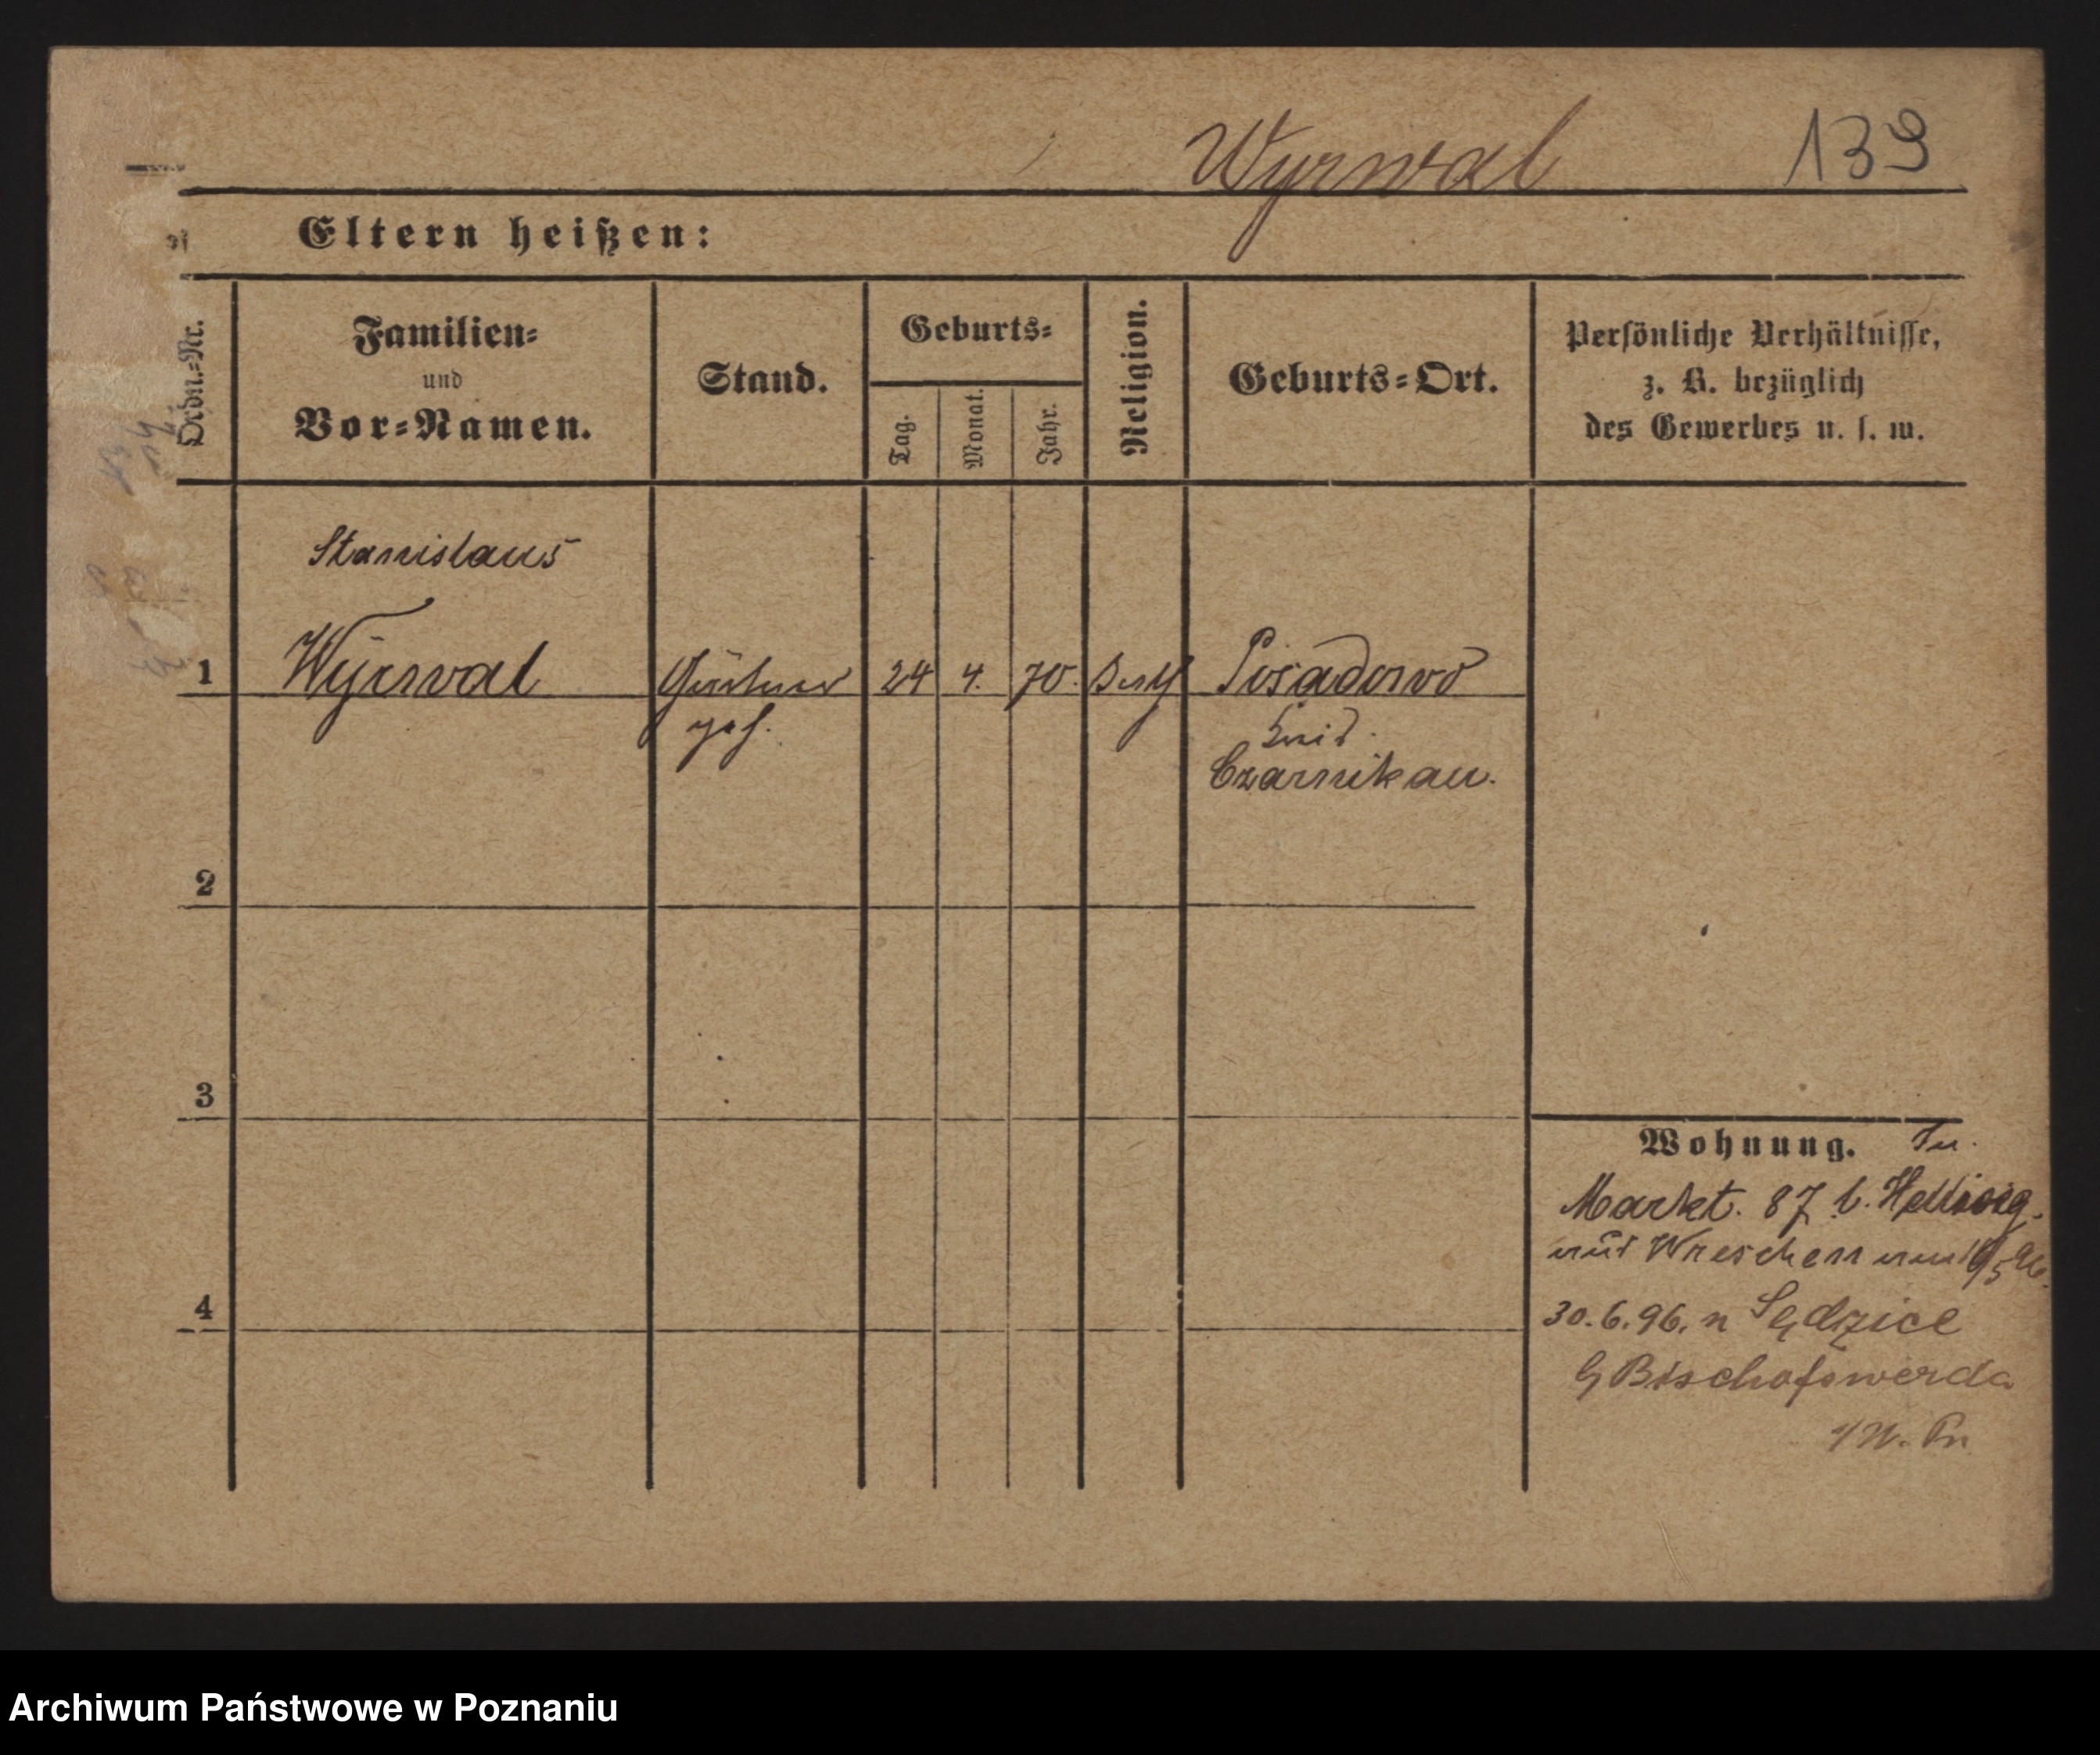 Wyrwal 139
Eltern heißen:
Ordn.-Nr.
Familien-
und
Vor-Namen.
Stand.
Geburts-
Tag.
Monat.
Jahr.
Religion.
Geburts-Ort.
Persönliche Verhältnisse,
z. B. bezüglich
des Gewerbes u. s. w.
Stanislaus
1 Wyrwal Gärtner 24 4. 70. Posadowo
geh. Kreis
Czarnikau.
2
3
4
Wohnung.
Markt. 87 b. Hellwig.
aus Wreschen
30.6.96. n Sędzice
Bischofswerda
Archiwum Państwowe w Poznaniu